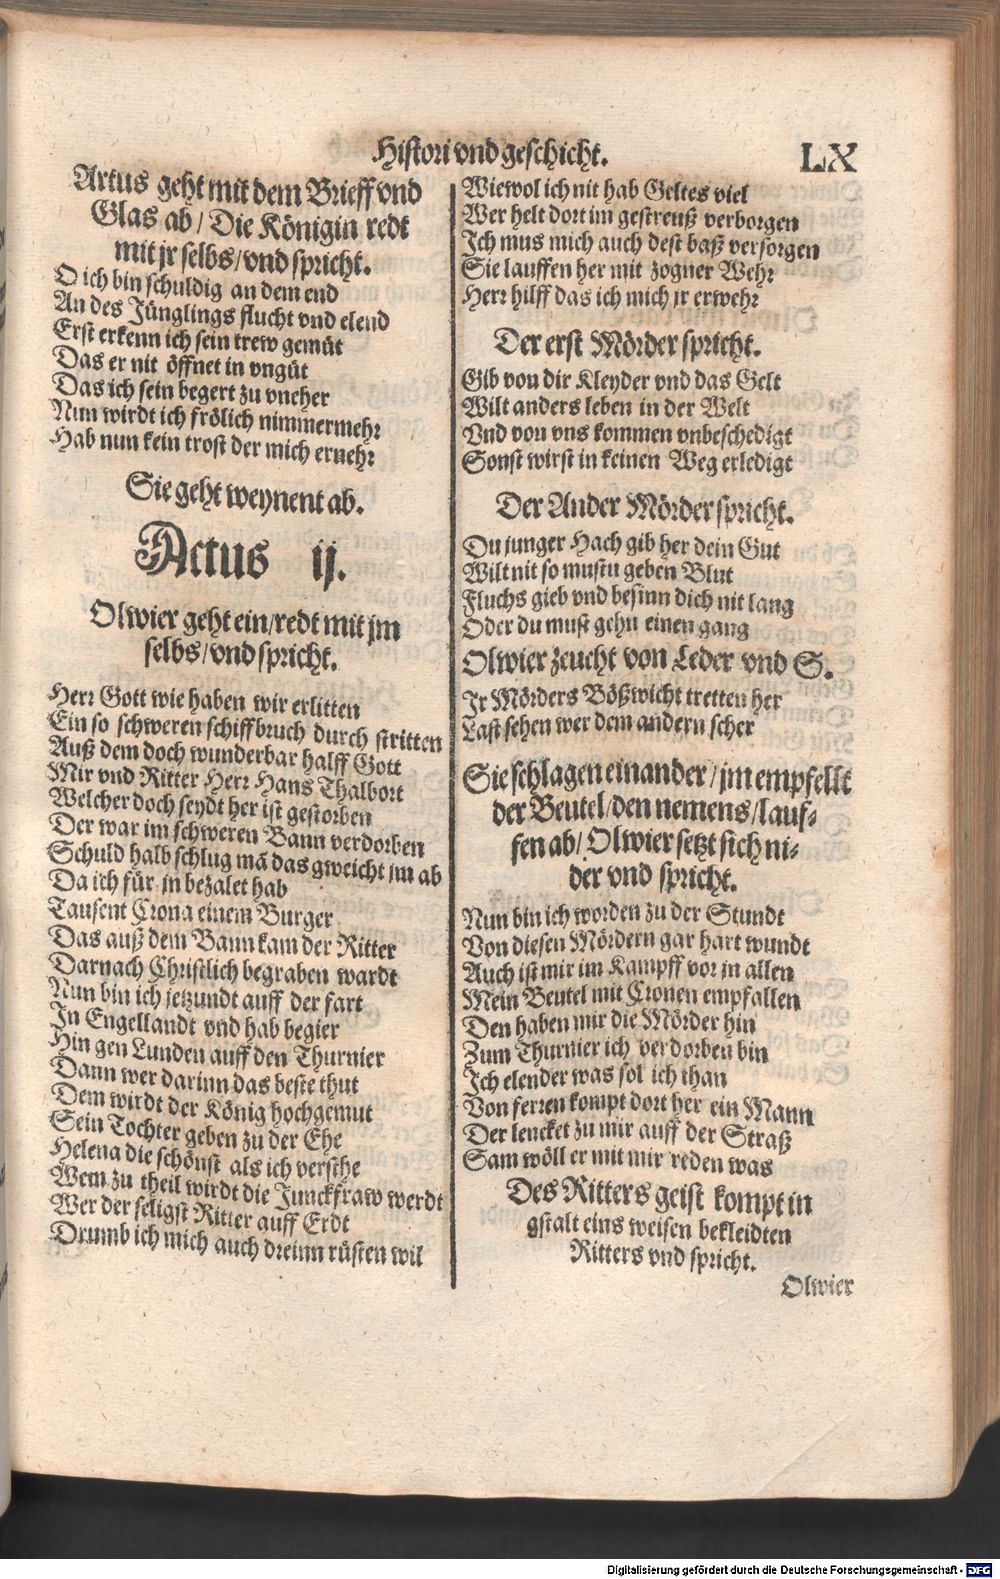 Histori vnd geschicht.
LX
Artus geht mit dem Brieff vnd
Glas ab / Die Königin redt
mit jr selbs / vnd spricht.
O ich bin schuldig an dem end
An des Jünglings flucht vnd elend
Erst erkenn ich sein trew gemüt
Das er nit öffnet in vngüt
Das ich sein begert zu vneher
Nun wirdt ich frölich nimmermehr
Hab nun kein trost der mich ernehr
Sie geht weynent ab.
Actus ij.
Olwier geht ein / redt mit jm
selbs / vnd spricht.
Herr Gott wie haben wir erlitten
Ein so schweren schiffbruch durch stritten
Auß dem doch wunderbar halff Gott
Mir vnd Ritter Herr Hans Thalbort
Welcher doch seydt her ist gestorben
Der war im schweren Bann verdorben
Schuld halb schlug mā das gweicht jm ab
Da ich für jn bezalet hab
Tausent Crona einem Burger
Das auß dem Bann kam der Ritter
Darnach Christlich begraben wardt
Nun bin ich jetzundt auff der fart
In Engellandt vnd hab begier
Hin gen Lunden auff den Thurnier
Dann wer darinn das beste thut
Dem wirdt der König hochgemut
Sein Tochter geben zu der Ehe
Helena die schönst als ich versthe
Wem zu theil wirdt die Junckfraw werdt
Wer der seligst Ritter auff Erdt
Drumb ich mich auch dreinn rüsten wil
Wiewol ich nit hab Geltes viel
Wer helt dort im gestreuß verborgen
Ich mus mich auch dest baß versorgen
Sie lauffen her mit zogner Wehr
Herr hilff das ich mich jr erwehr
Der erst Mörder spricht.
Gib von dir Kleyder vnd das Gelt
Wilt anders leben in der Welt
Vnd von vns kommen vnbeschedigt
Sonst wirst in keinen Weg erledigt
Der Ander Mörder spricht.
Du junger Hach gib her dein Gut
Wilt nit so mustu geben Blut
Fluchs gieb vnd besinn dich nit lang
Oder du must gehn einen gang
Olwier zeucht von Leder vnd S.
Jr Mörders Bößwicht tretten her
Last sehen wer dem andern scher
Sie schlagen einander / jm empfellt
der Beutel / den nemens / lauf-
fen ab / Olwier setzt sich ni-
der vnd spricht.
Nun bin ich worden zu der Stundt
Von diesen Mördern gar hart wundt
Auch ist mir im Kampff vor jn allen
Mein Beutel mit Cronen empfallen
Den haben mir die Mörder hin
Zum Thurnier ich verdorben bin
Ich elender was sol ich than
Von ferren kompt dort her ein Mann
Der lencket zu mir auff der Straß
Sam wöll er mit mir reden was
Des Ritters geist kompt in
gstalt eins weisen bekleidten
Ritters vnd spricht.
Olwier
Digitalisierung gefördert durch die Deutsche Forschungsgemeinschaft - DFG